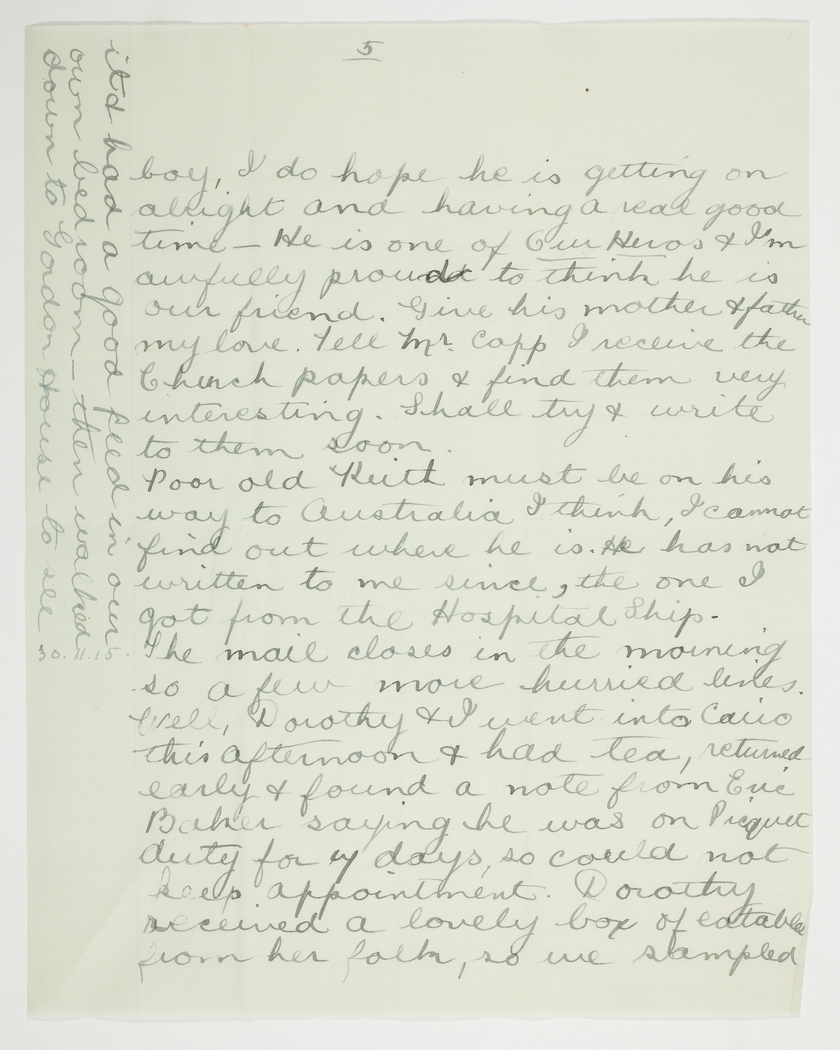 5
boy, I do hope he is getting on
alright and having a real good
time — He is one of Our Heros & I'm
awfully proud to think he is
our friend. Give his mother & father
my love. Tell Mr. Capp I receive the
Church papers & find them very
interesting. Shall try & write
to them soon.
Poor old Keith must be on his
way to Australia I think, I cannot
find out where he is. He has not
written to me since, the one I
got from the Hospital Ship.
30.11.15.
The mail closes in the morning
so a few more hurried lines.
Well, Dorothy & I went into Cairo
this afternoon & had tea, returned
early & found a note from Eric
Baker saying he was on Picquet
duty for 4 days, so could not
keep appointment. Dorothy
received a lovely box of eatables
from her folk, so we sampled
it & had a good feed in our
own bedroom — then walked
down to Gordon House to see